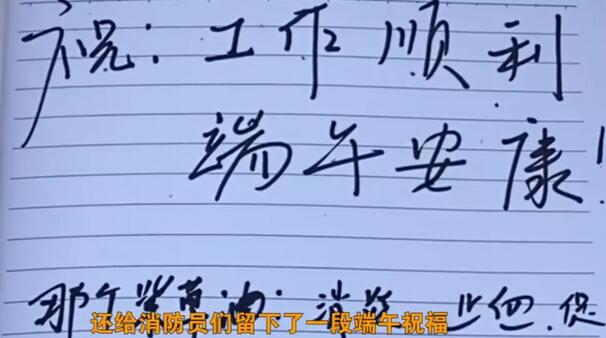 祝：工作顺利
端午安康！
那个
还给消防员们留下了一段端午祝福